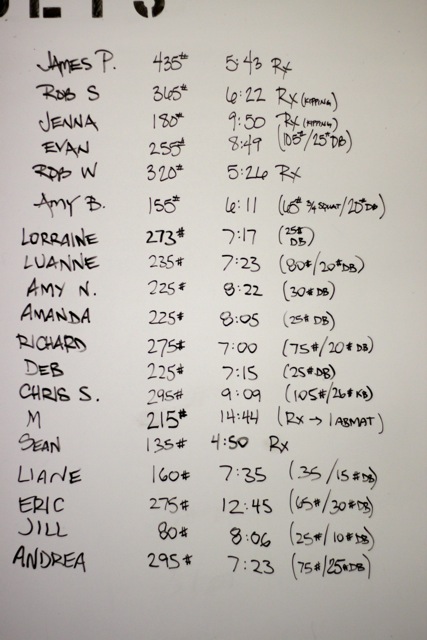 JAMES P. 435# 5:43 Rx
ROB S 365# 6:22 Rx (KIPPING)
JENNA 180# 9:50 Rx (KIPPING)
EVAN 255# 8:49 (105#/25#DB)
ROB W 320# 5:26 Rx
AMY B. 155# 6:11 (65# 3/4 SQUAT/20#DB)
LORRAINE 273# 7:17 (25# DB)
LUANNE 235# 7:23 (80#/20#DB)
AMY N. 225# 8:22 (30# DB)
AMANDA 225# 8:05 (25# DB)
RICHARD 275# 7:00 (75#/20# DB)
DEB 225# 7:15 (25#DB)
CHRIS S. 295# 9:09 (105#/26# KB)
M 215# 14:44 (Rx → 1 ABMAT)
SEAN 135# 4:50 Rx
LIANE 160# 7:35 (35/15#DB)
ERIC 275# 12:45 (65#/30#DB)
JILL 80# 8:06 (25#/10#DB)
ANDREA 295# 7:23 (75#/25#DB)